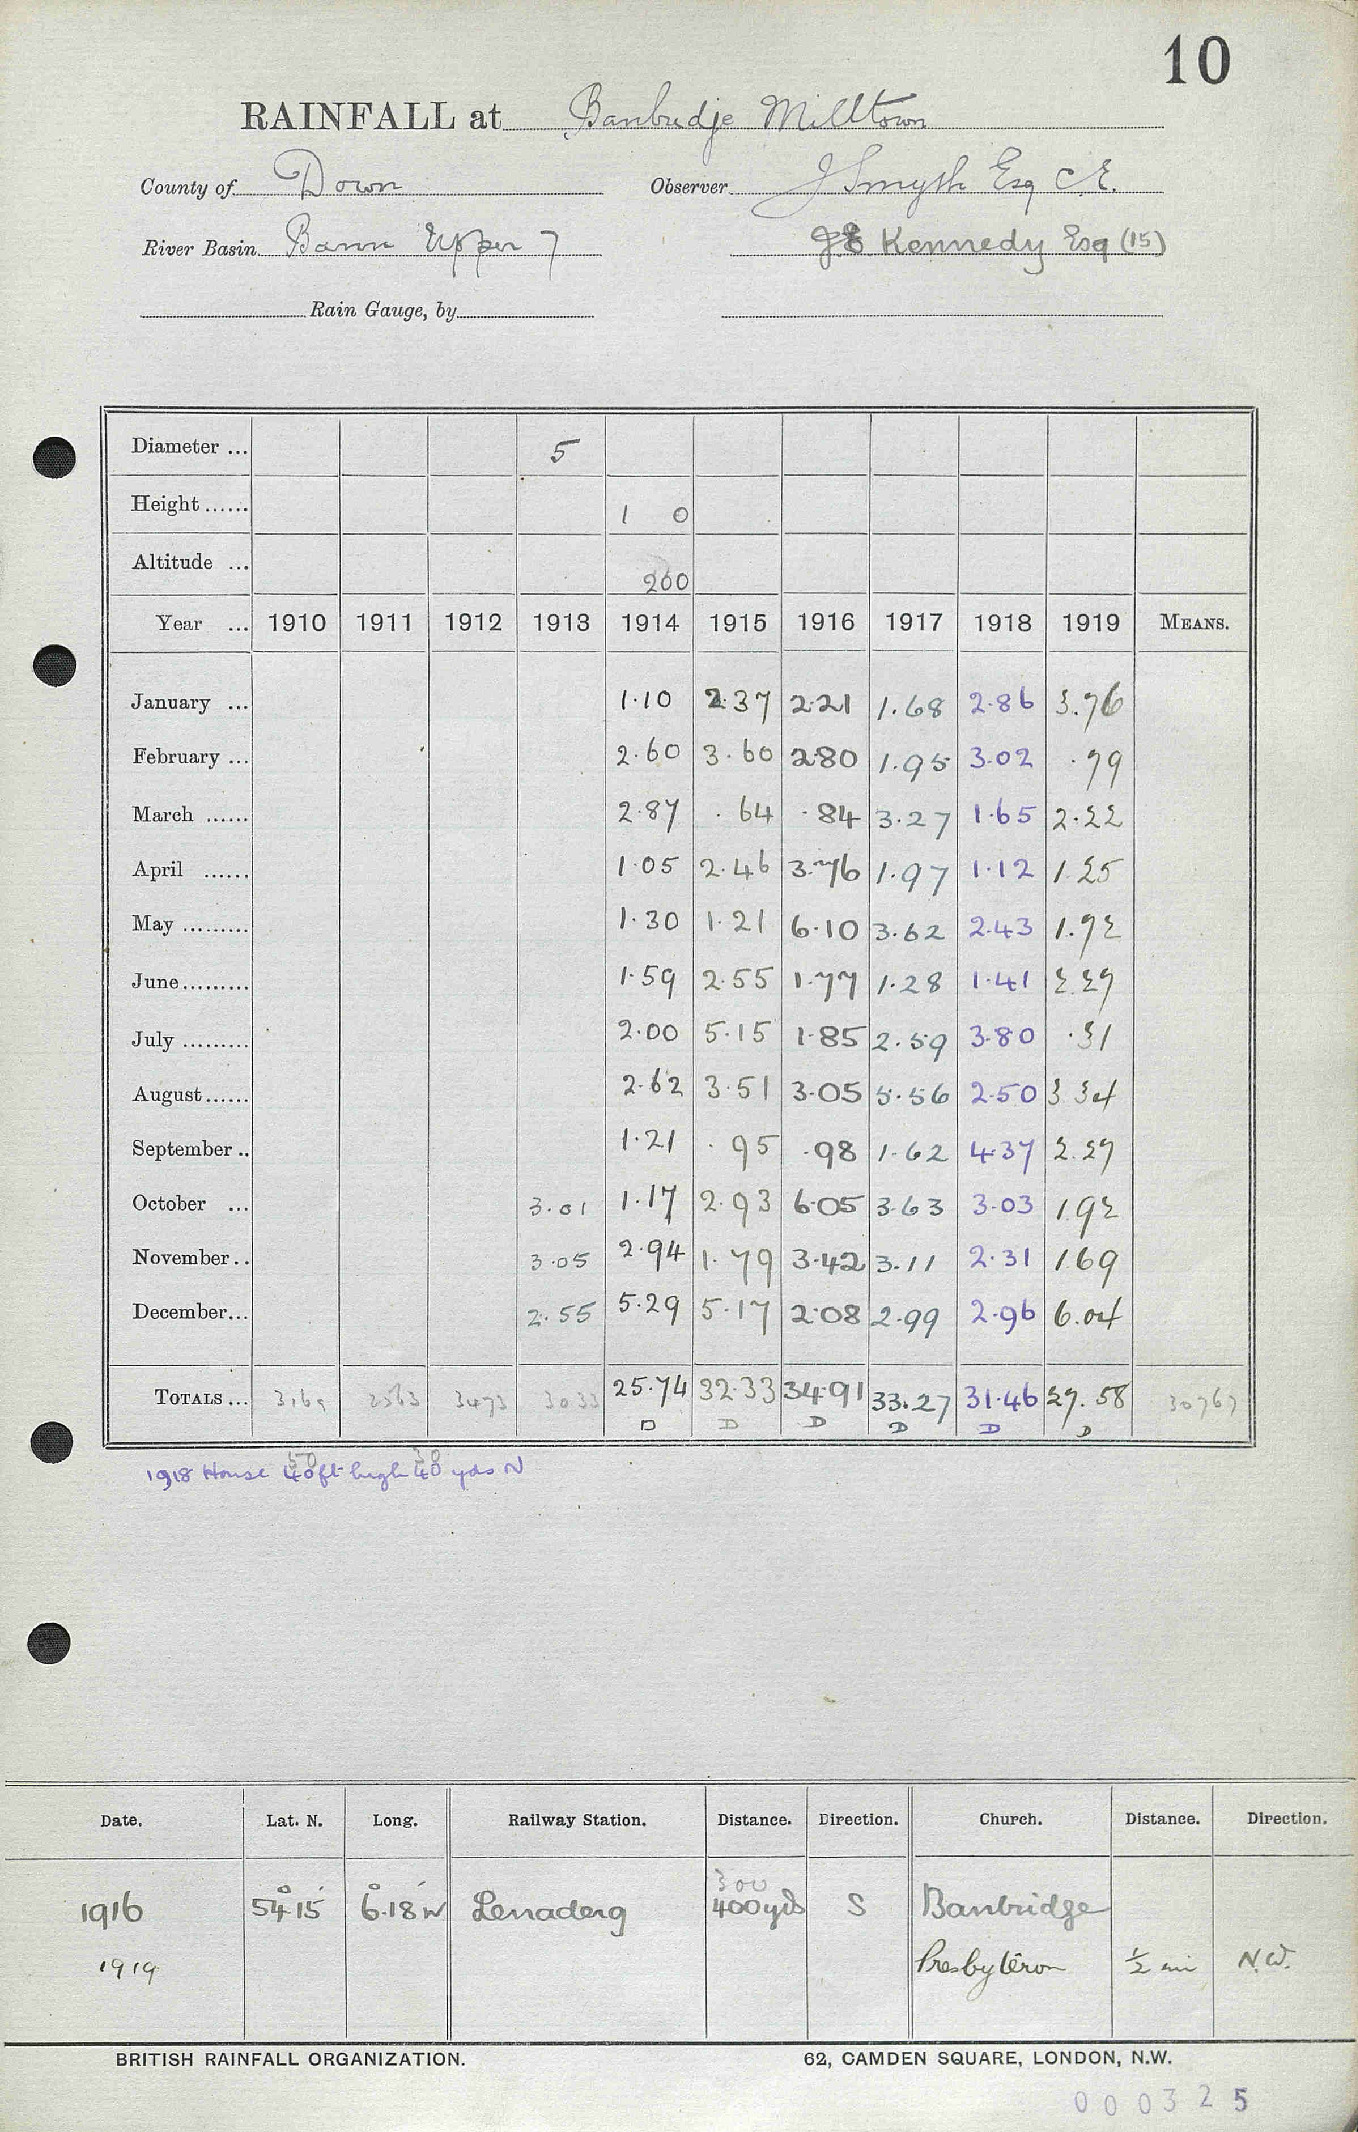 10
RAINFALL at Banbridge Milltown
County of Down Observer J Smyth Esq C.E.
River Basin Bann Upper 7 J E Kennedy Esq (15)
Rain Gauge, by
Diameter ... 5
Height ...... 1 0
Altitude ... 200
Year ... 1910 1911 1912 1913 1914 1915 1916 1917 1918 1919 MEANS.
January ... 1.10 2.37 2.21 1.68 2.86 3.76
February ... 2.60 3.60 2.80 1.95 3.02 .79
March ...... 2.87 .64 .84 3.27 1.65 2.22
April ...... 1.05 2.46 3.76 1.97 1.12 1.25
May ......... 1.30 1.21 6.10 3.62 2.43 1.72
June ......... 1.59 2.55 1.77 1.28 1.41 2.27
July ......... 2.00 5.15 1.85 2.59 3.80 .31
August ...... 2.62 3.51 3.05 5.56 2.50 3 34
September .. 1.21 .95 .98 1.62 4.37 2.27
October ... 3.01 1.17 2.93 6.05 3.63 3.03 1.92
November .. 3.05 2.94 1.79 3.42 3.11 2.31 1 69
December ... 2.55 5.29 5.17 2.08 2.99 2.96 6.04
TOTALS ... 3169 2563 3473 3033 25.74 32.33 34.91 33.27 31.46 27.58 30767
D D D D D D
50 30
1918 House 40 ft high 40 yds N
Date. Lat. N. Long. Railway Station. Distance. Direction. Church. Distance. Direction.
300
1916 54°15' 6°18'W Lenaderg 400 yds S Banbridge
1919 Presbyteron ½ mi N.W.
BRITISH RAINFALL ORGANIZATION. 62, CAMDEN SQUARE, LONDON, N.W.
000325